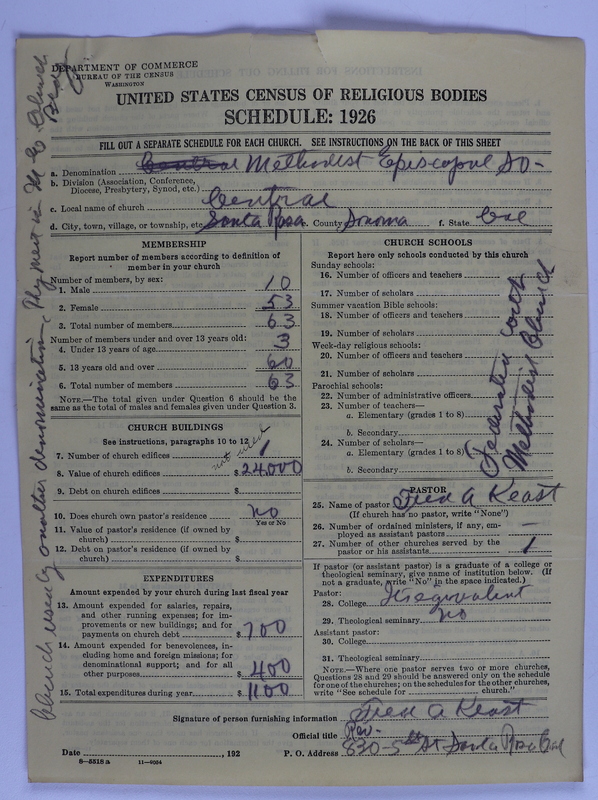 DEPARTMENT OF COMMERCE
BUREAU OF THE CENSUS
WASHINGTON
UNITED STATES CENSUS OF RELIGIOUS BODIES
SCHEDULE: 1926
FILL OUT A SEPARATE SCHEDULE FOR EACH CHURCH. SEE INSTRUCTIONS ON THE BACK OF THIS SHEET
a. Denomination Central Methodist Episcopal So-
b. Division (Association, Conference,
Diocese, Presbytery, Synod, etc.)
c. Local name of church Central
d. City, town, village, or township, etc. Santa Rosa. County Sonoma f. State Cal
MEMBERSHIP
Report number of members according to definition of
member in your church
Number of members, by sex:
1. Male 10
2. Female 53
3. Total number of members 63
Number of members under and over 13 years old:
4. Under 13 years of age 3
5. 13 years old and over 60
6. Total number of members 63
NOTE.—The total given under Question 6 should be the
same as the total of males and females given under Question 3.
CHURCH BUILDINGS
See instructions, paragraphs 10 to 12
not used
7. Number of church edifices 1
8. Value of church edifices $24000
9. Debt on church edifices $
10. Does church own pastor's residence No
Yes or No
11. Value of pastor's residence (if owned by
church) $
12. Debt on pastor's residence (if owned by
church) $
EXPENDITURES
Amount expended by your church during last fiscal year
13. Amount expended for salaries, repairs,
and other running expenses; for im-
provements or new buildings; and for
payments on church debt $700
14. Amount expended for benevolences, in-
cluding home and foreign missions; for
denominational support; and for all
other purposes 400
15. Total expenditures during year $1100
CHURCH SCHOOLS
Report here only schools conducted by this church
Sunday schools:
16. Number of officers and teachers
17. Number of scholars
Summer vacation Bible schools:
18. Number of officers and teachers
19. Number of scholars
Week-day religious schools:
20. Number of officers and teachers
21. Number of scholars
Parochial schools:
22. Number of administrative officers
23. Number of teachers—
a. Elementary (grades 1 to 8)
b. Secondary
24. Number of scholars—
a. Elementary (grades 1 to 8)
b. Secondary
Federated with
Methodist Church
PASTOR
25. Name of pastor Fred A Keast
(If church has no pastor, write "None")
26. Number of ordained ministers, if any, em-
ployed as assistant pastors —
27. Number of other churches served by the
pastor or his assistants 1
If pastor (or assistant pastor) is a graduate of a college or
theological seminary, give name of institution below. (If
not a graduate, write "No" in the space indicated.)
Pastor:
28. College Its equivalent
29. Theological seminary no
Assistant pastor:
30. College
31. Theological seminary
NOTE.—Where one pastor serves two or more churches,
Questions 28 and 29 should be answered only on the schedule
for one of the churches; on the schedules for the other churches,
write "See schedule for church."
Signature of person furnishing information Fred A Keast
Official title Rev-
Date , 192
P. O. Address 830-5th St Santa Rosa Cal
8—5518 a 11—9034
Church used by another denomination,
in M E Church